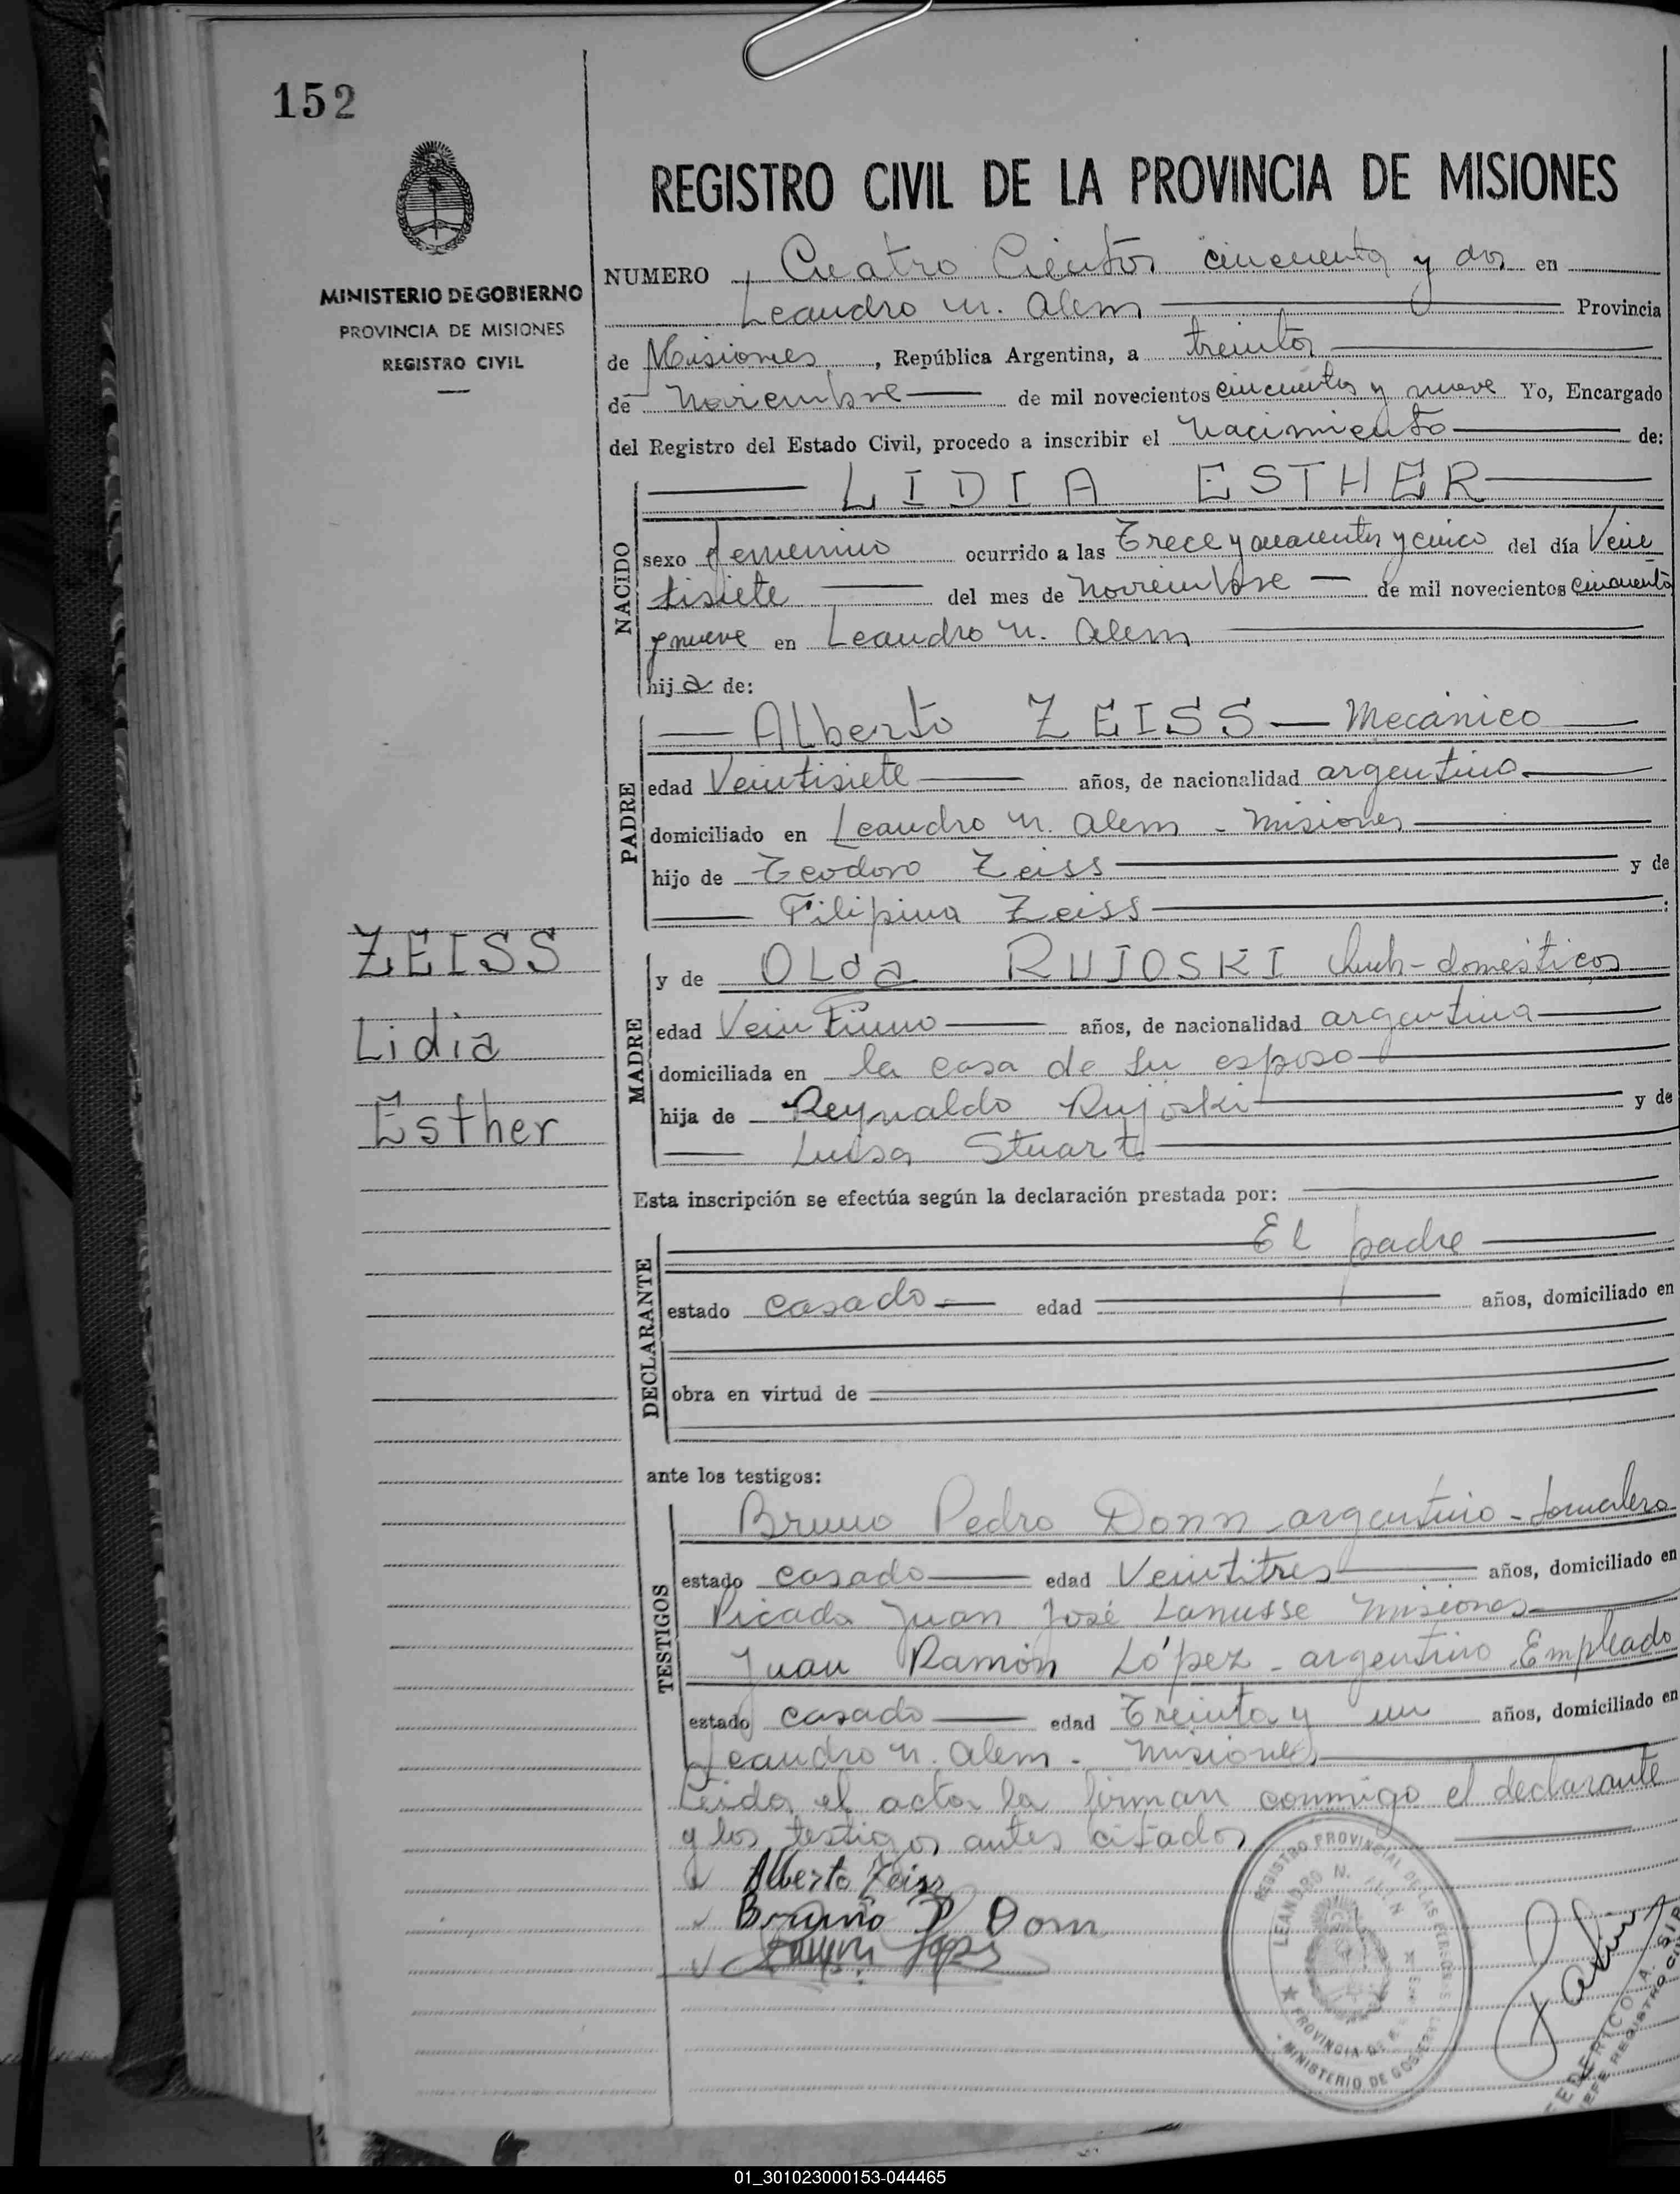 152
MINISTERIO DE GOBIERNO
PROVINCIA DE MISIONES
REGISTRO CIVIL
REGISTRO CIVIL DE LA PROVINCIA DE MISIONES
NUMERO Cuatro Cientos cincuenta y dos en
Leandro N. Alem Provincia
de Misiones, República Argentina, a treinta
de Noviembre de mil novecientos cincuenta y nueve Yo, Encargado
del Registro del Estado Civil, procedo a inscribir el Nacimiento de:
NACIDO
LIDIA ESTHER
sexo femenino ocurrido a las Trece y cuarenta y cinco del día Vein
tisiete del mes de Noviembre de mil novecientos cincuenta
y nueve en Leandro N. Alem
hija de:
PADRE
Alberto ZEISS - Mecánico
edad Veintisiete años, de nacionalidad argentino
domiciliado en Leandro N. Alem - Misiones
hijo de Teodoro Zeiss y de
Filipina Zeiss :
ZEISS
Lidia
Esther
MADRE
y de OLda RUJOSKI domésticos
edad Veintiuno años, de nacionalidad argentina
domiciliada en la casa de su esposo
hija de Reynaldo Rujoski y de
Luisa Stuart
Esta inscripción se efectúa según la declaración prestada por:
DECLARANTE
El padre
estado casado edad años, domiciliado en
obra en virtud de
ante los testigos:
TESTIGOS
Bruno Pedro Donn - argentino - Jornalero
estado casado edad Veintitres años, domiciliado en
Picada Juan José Lanusse Misiones
Juan Ramón López - argentino Empleado
estado casado edad Treinta y un años, domiciliado en
Leandro N. Alem - Misiones
Leida el acta la firman conmigo el declarante
y los testigos antes citados
Alberto Zeiss
Bruno P Donn
REGISTRO PROVINCIAL DE LAS PERSONAS
LEANDRO N. ALEM
PROVINCIA DE
MINISTERIO DE GOBIERNO
FEDERICO A.
JEFE REGISTRO
01_301023000153-044465